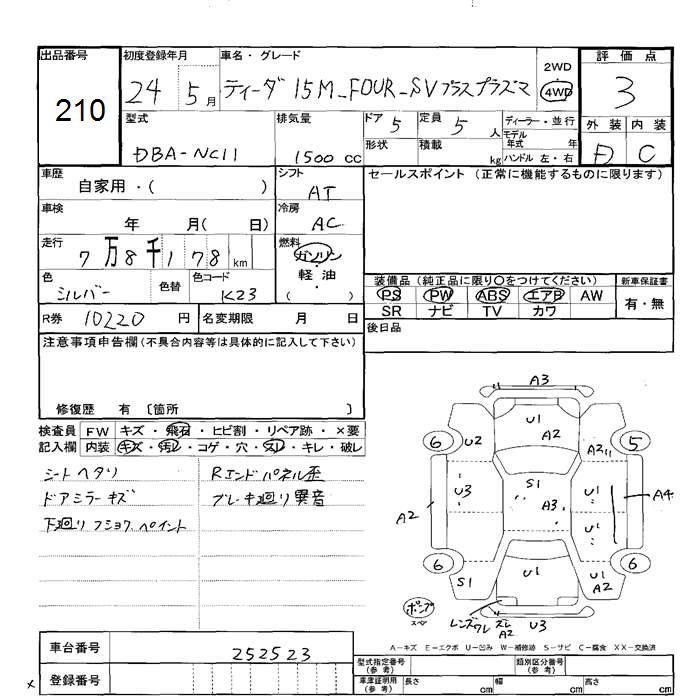 出品番号 初度登録年月 車名・グレード 2WD 評価点
210 24 5月 ティーダ 15M_FOUR_SVプラスプラズマ 4WD 3
型式 排気量 ドア 5 定員 5人 ディーラー・並行 外装 内装
モデル年式 年
DBA-NC11 1500 cc 形状 積載 kg ハンドル 左・右 D C
車歴 自家用・( ) シフト AT セールスポイント (正常に機能するものに限ります)
車検 年 月( 日) 冷房 AC
走行 7万8千178km 燃料 ガソリン・軽油
( )
色 シルバー 色替 色コード K23
装備品 (純正品に限り○をつけてください) 新車保証書
PS PW ABS エアB AW 有・無
SR ナビ TV カワ
R券 10220 円 名変期限 月 日 後日品
注意事項申告欄(不具合内容等は具体的に記入して下さい)
修復歴 有 [箇所 ]
検査員 FW キズ・飛石・ヒビ割・リペア跡・×要
記入欄 内装 キズ・汚レ・コゲ・穴・スレ・キレ・破レ
シートヘタリ Rエンドパネル歪
ドアミラーキズ ブレーキ廻り異音
下廻りフショクペイント
A3
U1
A2
6 U2 A2 5
U3 S1 U1 A4
A2 A3 U1
6 6
S1 U1 U1 A2
ポンプ スペア レンズワレ スレ A2 U3
A-キズ E-エクボ U-凹み W-補修跡 S-サビ C-腐食 XX-交換済
車台番号 252523
登録番号
型式指定番号(参考) 類別区分番号(参考)
車庫証明用(参考) 長さ cm 幅 cm 高さ cm
×